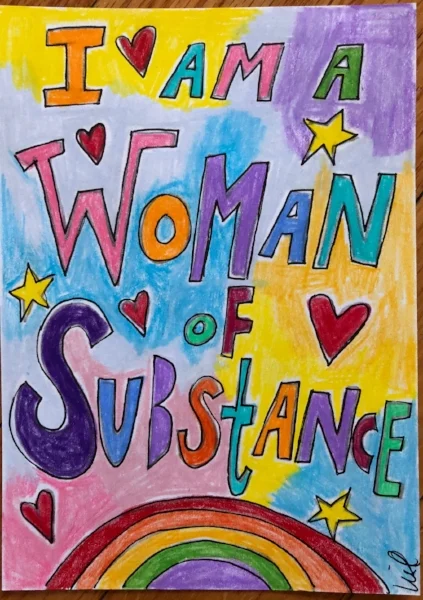 I AM A
WOMAN
OF
SUBStANCE